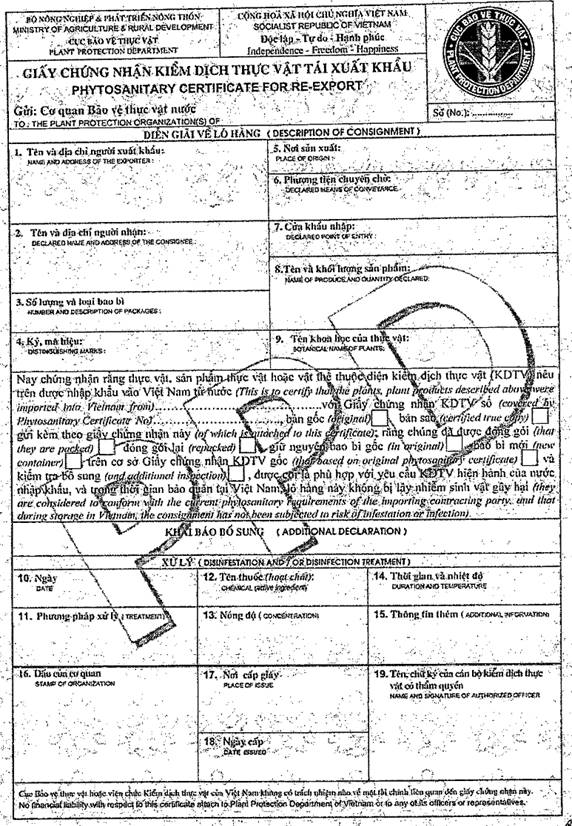 BỘ NÔNG NGHIỆP & PHÁT TRIỂN NÔNG THÔN
MINISTRY OF AGRICULTURE & RURAL DEVELOPMENT
CỤC BẢO VỆ THỰC VẬT
PLANT PROTECTION DEPARTMENT
CỘNG HOÀ XÃ HỘI CHỦ NGHĨA VIỆT NAM
SOCIALIST REPUBLIC OF VIETNAM
Độc lập - Tự do - Hạnh phúc
Independence - Freedom - Happiness
CỤC BẢO VỆ THỰC VẬT
PLANT PROTECTION DEPARTMENT
GIẤY CHỨNG NHẬN KIỂM DỊCH THỰC VẬT TÁI XUẤT KHẨU
PHYTOSANITARY CERTIFICATE FOR RE-EXPORT
Gửi: Cơ quan Bảo vệ thực vật nước
TO : THE PLANT PROTECTION ORGANIZATION(S) OF
Số (No.): ..............
DIỄN GIẢI VỀ LÔ HÀNG ( DESCRIPTION OF CONSIGNMENT )
1. Tên và địa chỉ người xuất khẩu:
NAME AND ADDRESS OF THE EXPORTER :
5. Nơi sản xuất:
PLACE OF ORIGIN :
6. Phương tiện chuyên chở:
DECLARED MEANS OF CONVEYANCE:
2. Tên và địa chỉ người nhận:
DECLARED NAME AND ADDRESS OF THE CONSIGNEE :
7. Cửa khẩu nhập:
DECLARED POINT OF ENTRY :
8.Tên và khối lượng sản phẩm:
NAME OF PRODUCE AND QUANTITY DECLARED:
3. Số lượng và loại bao bì
NUMBER AND DESCRIPTION OF PACKAGES :
4. Ký, mã hiệu:
DISTINGUISHING MARKS :
9. Tên khoa học của thực vật:
BOTANICAL NAME OF PLANTS:
Nay chứng nhận rằng thực vật, sản phẩm thực vật hoặc vật thể thuộc diện kiểm dịch thực vật (KDTV) nêu
trên được nhập khẩu vào Việt Nam từ nước (This is to certify that the plants, plant products described above were
imported into Vietnam from)..............................với Giấy chứng nhận KDTV số (covered by
Phytosanitary Certificate No)........................, bản gốc (original) bản sao (certified true copy)
gửi kèm theo giấy chứng nhận này (of which is attached to this certificate); rằng chúng đã được đóng gói (that
they are packed) đóng gói lại (repacked) giữ nguyên bao bì gốc (in original) bao bì mới (new
container) trên cơ sở Giấy chứng nhận KDTV gốc (that based on original phytosanitary certificate) và
kiểm tra bổ sung (and additional inspection) , được coi là phù hợp với yêu cầu KDTV hiện hành của nước
nhập khẩu, và trong thời gian bảo quản tại Việt Nam, lô hàng này không bị lây nhiễm sinh vật gây hại (they
are considered to conform with the current phytosanitary requirements of the importing contracting party, and that
during storage in Vietnam, the consignment has not been subjected to risk of infestation or infection).
KHAI BÁO BỔ SUNG ( ADDITIONAL DECLARATION )
XỬ LÝ ( DISINFESTATION AND / OR DISINFECTION TREATMENT )
10. Ngày
DATE
12. Tên thuốc (hoạt chất):
CHEMICAL (active ingredient)
14. Thời gian và nhiệt độ
DURATION AND TEMPERATURE
11. Phương pháp xử lý ( TREATMENT )
13. Nồng độ ( CONCENTRATION )
15. Thông tin thêm ( ADDITIONAL INFORMATION )
16. Dấu của cơ quan
STAMP OF ORGANIZATION
17. Nơi cấp giấy
PLACE OF ISSUE
19. Tên, chữ ký của cán bộ kiểm dịch thực
vật có thẩm quyền
NAME AND SIGNATURE OF AUTHORIZED OFFICER
18. Ngày cấp
DATE ISSUED
Cục Bảo vệ thực vật hoặc viên chức Kiểm dịch thực vật của Việt Nam không có trách nhiệm nào về mặt tài chính liên quan đến giấy chứng nhận này.
No financial liability with respect to this certificate attach to Plant Protection Department of Vietnam or to any of its officers or representatives.